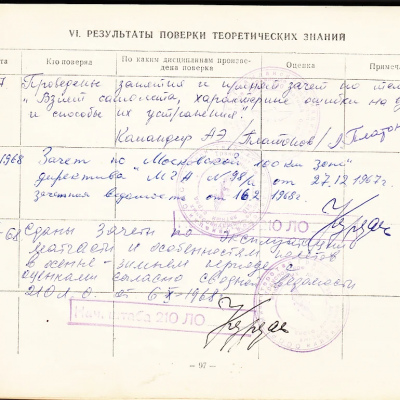 VI. РЕЗУЛЬТАТЫ ПОВЕРКИ ТЕОРЕТИЧЕСКИХ ЗНАНИЙ
та Кто поверял По каким дисциплинам произве-
дена поверка Оценка Примеча
7 Проведены занятия и принят зачет по тем
"Взлет самолета, характерные ошибки на
и способы их устранения".
Командир АЭ /Платонов/
1968 Зачет по "Московской зоне"
директива "МГА-№98/и от 27.12.1967г.
зачетная ведомость от 16.2.1968г.
-68 Сданы Зачеты по эксплуатации
матчасти и особенностям полетов
в осенне-зимнем периоде с
оценками согласно сводной ведомости
210 л.о. от 6/X-1968г.
210 ЛО
Нач. штаба 210 ЛО
— 97 —